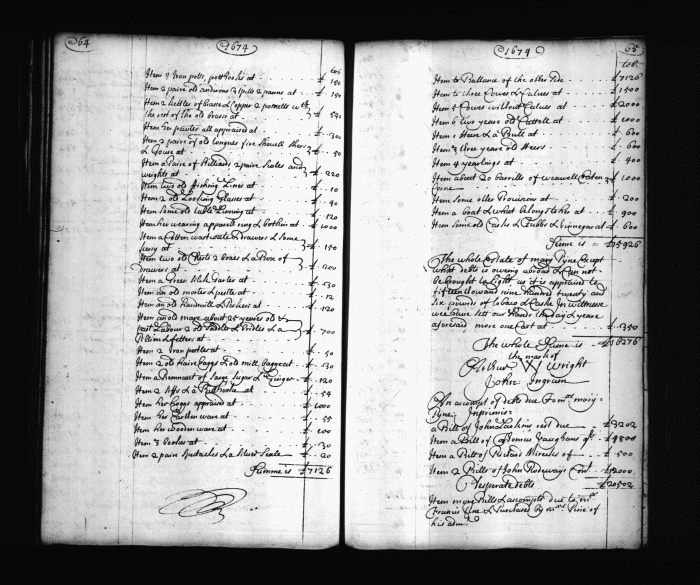 64
1674
lob.
Item 4 Iron potts, potthookes at £ 150
Item 2 paire old andirons 3 spitts 2 panns at £ 150
Item 2 kettles of brass & Copper 2 posnetts wth
the rest of the old brass at £ 540
Item ye pewter all appraised at £ 300
Item 2 paire of old tongues fire shovell
at £ 50
Item a Paire of Stilliards 2 paire Scales and
weights at £ 220
Item two old fishing Lines at £ 10
Item 2 old Looking Glasses at £ 40
Item Some old table Linning at £ 120
Item her wearing apparell ring & bodkin at £ 1000
Item a Cotton wastcoate & Drawers & Some
at £ 150
Item two old Chests 2 boxes & a
Drawers at £ 200
Item a at £ 530
Item an old morter & pestle at £ 12
Item an old Handmill & at £ 120
Item an old mare about 25 yeares old &
2 old Saddle & Bridles & a
& fetters at £ 700
Item 2 Iron pestles at £ 50
Item 2 old haire baggs & old mill baggs at £ 30
Item a Remnant of Serge Sugar & Ginger £ 120
Item 2 & a at £ 54
Item her hoggs appraised at £ 1000
Item her Earthen ware at £ 55
Item her wooden ware at £ 100
Item 3 bookes at £ 30
Item 2 pair Spectacles & a Silver Seale £ 20
Summe is £ 7126
1674
65
lob.
Item to Ballance of the other Side £ 7126
Item to three Cowes & Calves at £ 1500
Item 5 Cowes without Calves at £ 2000
Item 6 five yeare old Cattell at £ 2000
Item 1 Heifer & a Bull at £ 600
Item 3 three yeare old Steers £ 600
Item 4 yearelings at £ 400
Item about 20 barrells of
Corne £ 1000
Item Some other Provisions at £ 200
Item a boat & what belongs to her at £ 900
Item Some old Casks & Tubbs & vinegar at £ 600
Sume is £ 15926
The whole Estate of mary Pyne Except
what debts is owing abroad & Can not
be brought to Light as it is appraised to
fifteen thousand nine hundred twenty and
six pounds of tobaco & Caske In wittnesse
we have Sett our Hands the day & yeare
aforesd more one Cart at £ 350
The whole Sume is £ 16276
the mark of
Wright
John Ingram
An accompt of debts due to mrs mary
Pyne Imprimis
a Bill of John rest due £ 3202
Item a Bill of Thomas Vaughans of £ 4800
Item a Bill of Richard of £ 500
Item 2 Bills of John Rodeways £ 12000
Desperate debts £ 20502
Item more Bills & accompts due to mr
Francis Pine & Purchased by mrs Pine of
his admr